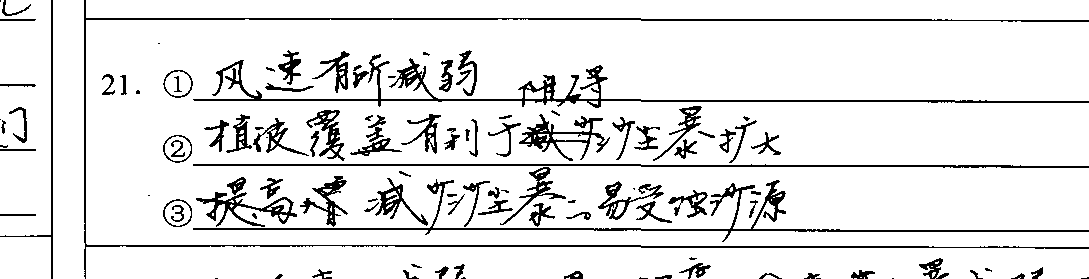 们
21. ① 风速有所减弱
阻碍
② 植被覆盖有利于沙尘暴扩大
③ 提高 减少沙尘暴 易受蚀沙源